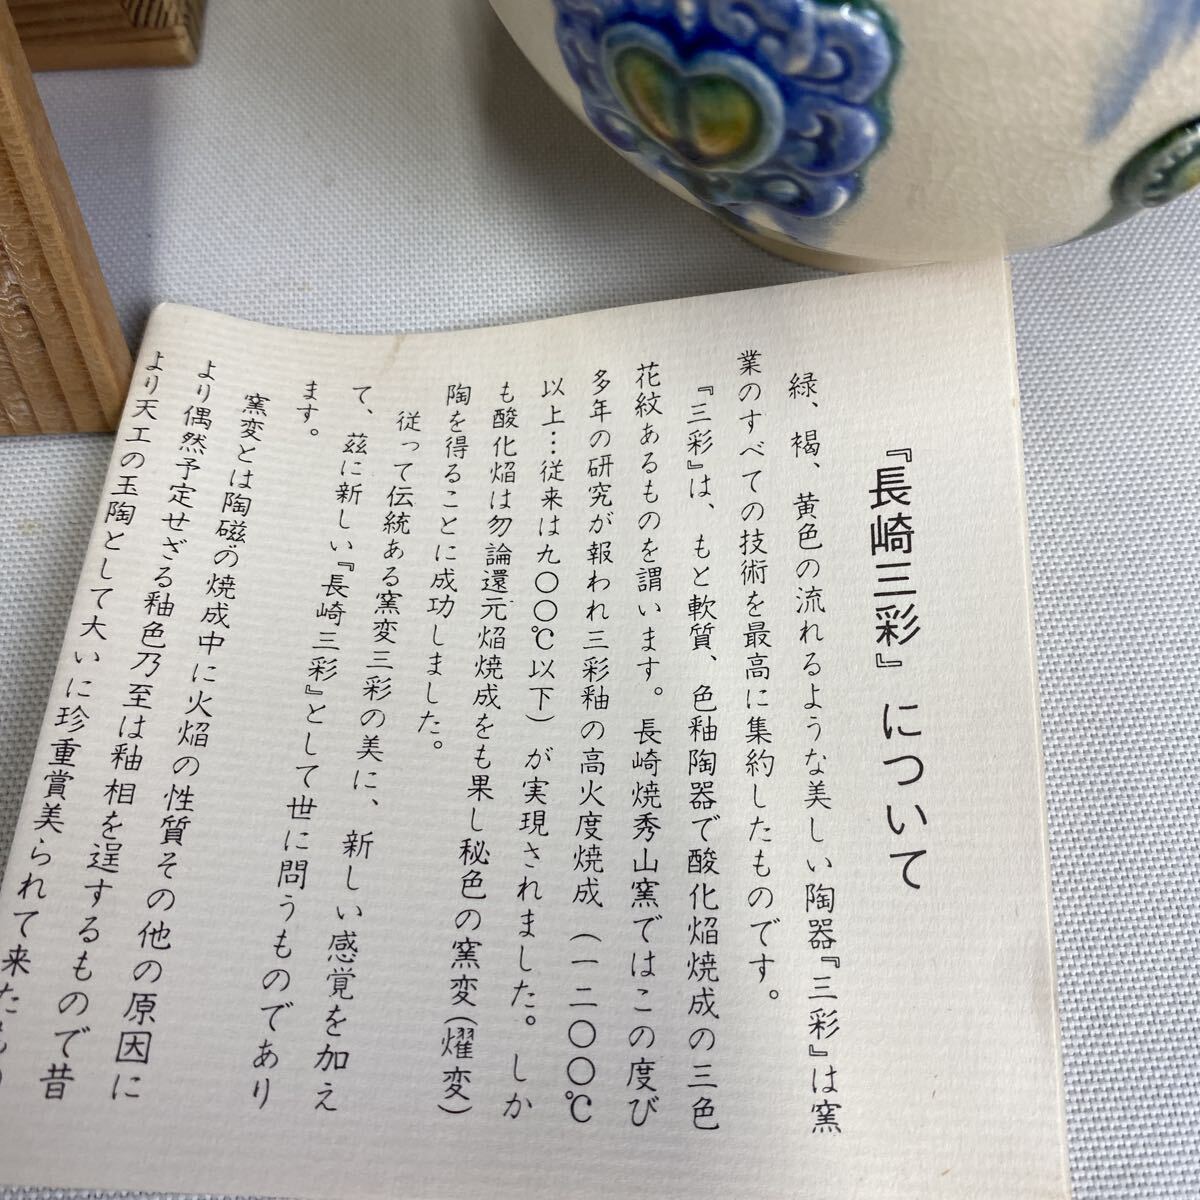 『長崎三彩』について
緑、褐、黄色の流れるような美しい陶器『三彩』は窯
業のすべての技術を最高に集約したものです。
『三彩』は、もと軟質、色釉陶器で酸化焔焼成の三色
花紋あるものを謂います。長崎焼秀山窯ではこの度び
多年の研究が報われ三彩釉の高火度焼成（一二〇〇℃
以上…従来は九〇〇℃以下）が実現されました。しか
も酸化焔は勿論還元焔焼成をも果し秘色の窯変（燿変）
陶を得ることに成功しました。
従って伝統ある窯変三彩の美に、新しい感覚を加え
て、茲に新しい『長崎三彩』として世に問うものであり
ます。
窯変とは陶磁の焼成中に火焔の性質その他の原因に
より偶然予定せざる釉色乃至は釉相を逞するもので昔
より天工の玉陶として大いに珍重賞美られて来たもの